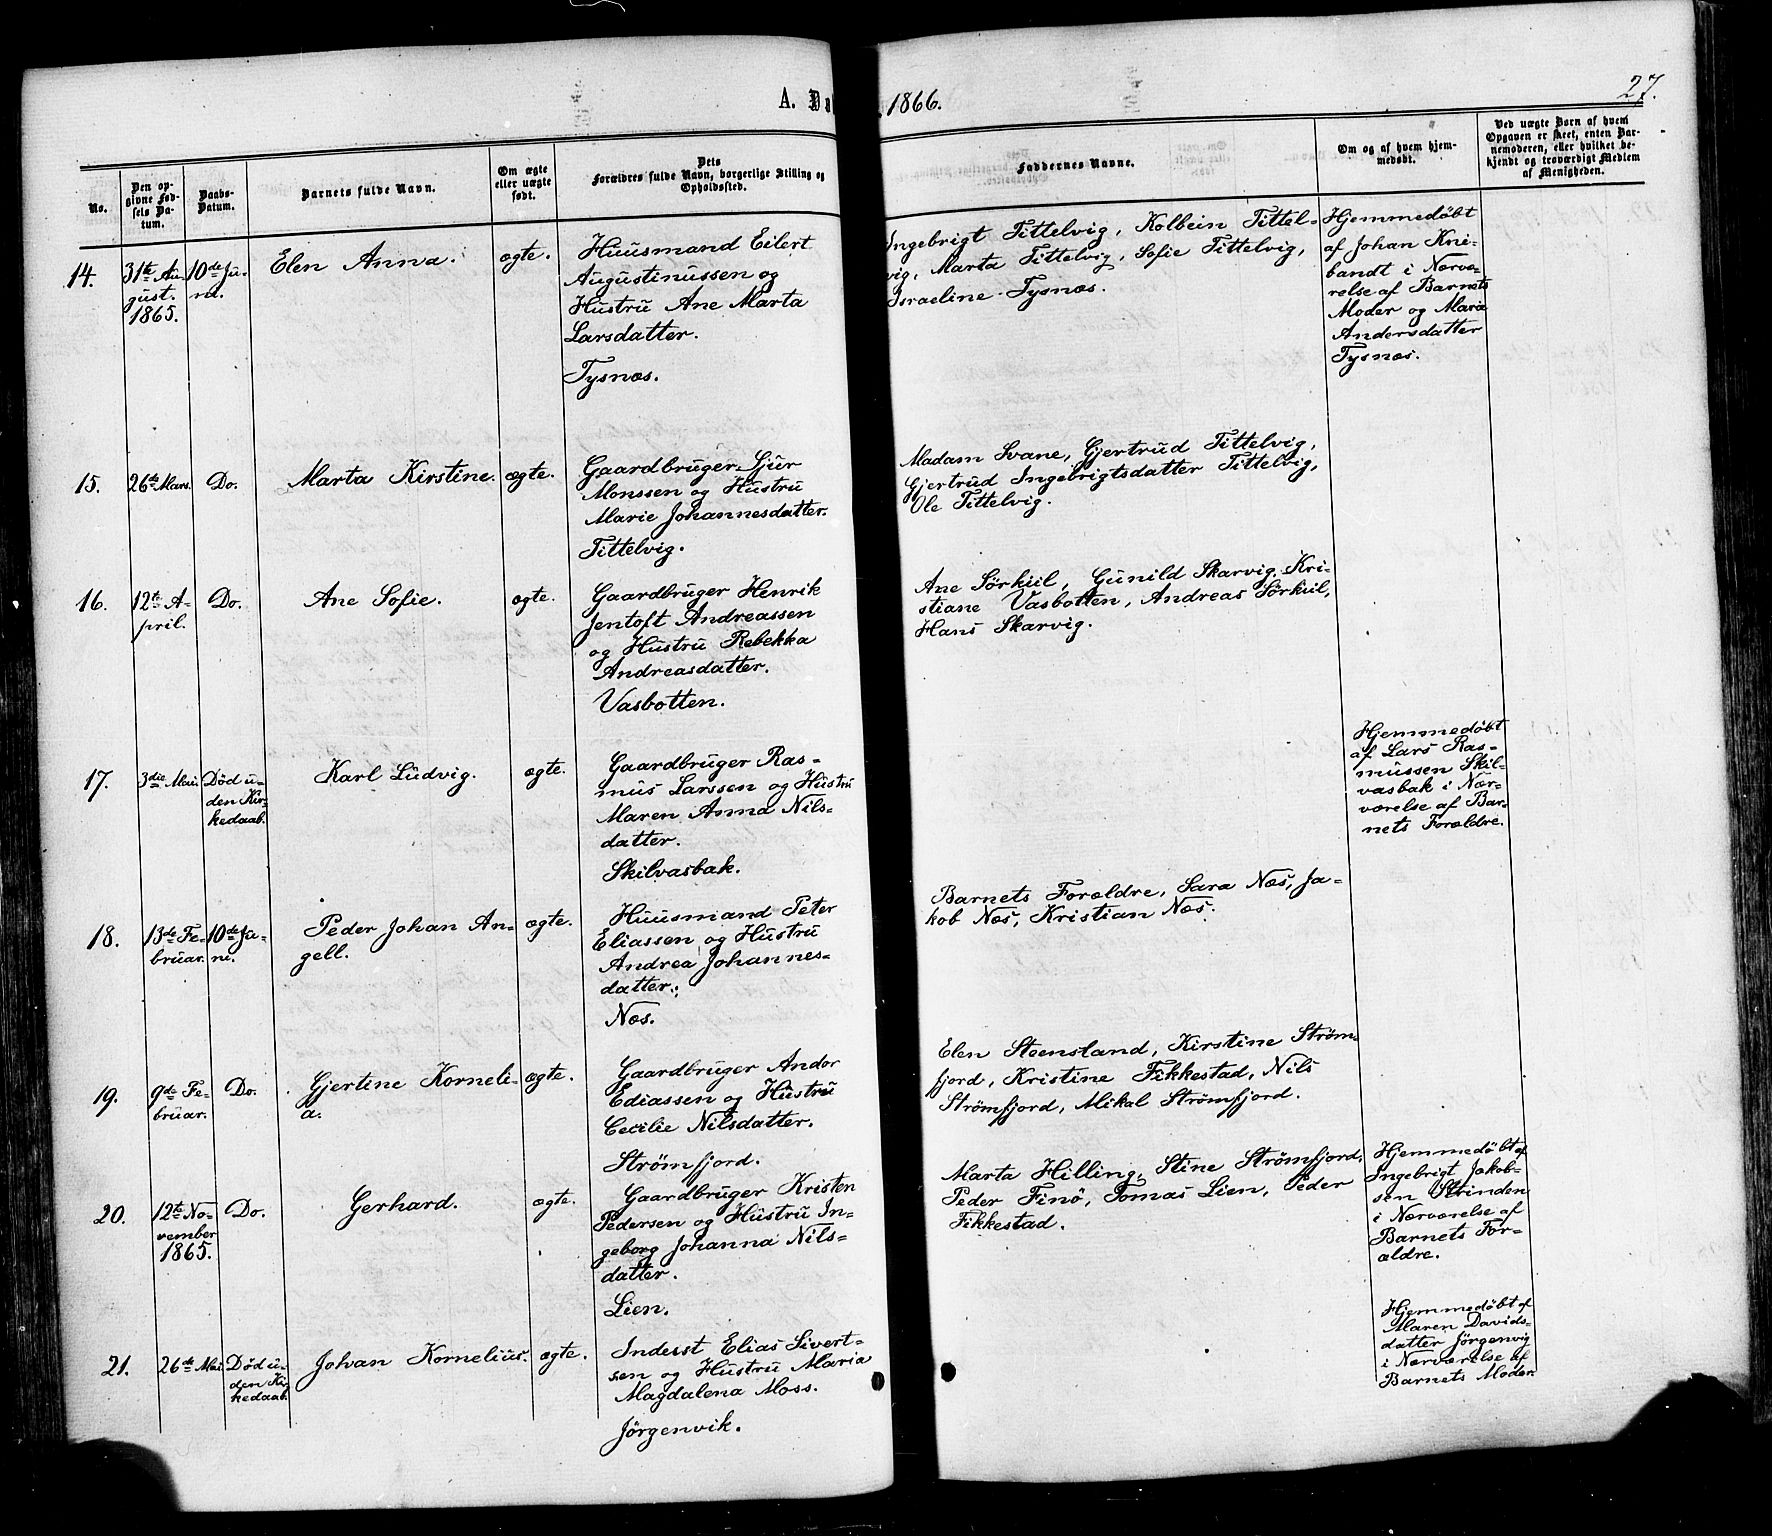 A. Dø
1866.
27.
No.
Den op-
givne Fød-
sels Da-
tum.
Daabs-
Datum.
Barnets fulde Navn.
Om ægte
eller uægte
født.
Dets
Forældres fulde Navn, borgerlige Stilling og
Opholdssted.
Faddernes Navne.
Om og af hvem hjem-
medøbt.
Ved uægte Børn af hvem
Opgaven er skeet, enten Bar-
nemoderen, eller hvilket be-
kjendt og troværdigt Medlem
af Menigheden.
14.
31te Au-
gust.
1865.
10de Ju-
ni.
Elen Anna.
ægte.
Huusmand Eilert
Augustinussen og
Hustru Ane Marta
Larsdatter.
Tysnæs.
Ingebrigt Tittelvig, Kolbein Tittel-
vig, Marta Tittelvig, Sofie Tittelvig,
Israeline Tysnæs.
Hjemmedøbt
af Johan Kni-
bandt i Nærvæ-
relse af Barnets
Moder og Maria
Andersdatter
Tysnæs.
15.
26de Mars.
Do.
Marta Kirstine.
ægte.
Gaardbruger Sjur
Monssen og Hustru
Marie Johannesdatter.
Tittelvig.
Madam Svane, Gjertrud Tittelvig,
Gjertrud Ingebrigtsdatter Tittelvig,
Ole Tittelvig.
16.
12te A-
pril.
Do.
Ane Sofie.
ægte.
Gaardbruger Henrik
Jentoft Andreassen
og Hustru Rebekka
Andreasdatter.
Vasbotten.
Ane Sørkiil, Gunild Skarvig, Kri-
stiane Vasbotten, Andreas Sørkiil,
Hans Skarvig.
17.
3die Mai.
Død u-
den Kir-
kedaab.
Karl Ludvig.
ægte.
Gaardbruger Ras-
mus Larssen og Hustru
Maren Anna Nils-
datter.
Skilvasbak.
Hjemmedøbt
af Lars Ras-
mussen Skil-
vasbak i Nær-
værelse af Bar-
nets Forældre.
18.
13de Fe-
bruar.
10de Ju-
ni.
Peder Johan An-
gell.
ægte.
Huusmand Peter
Eliassen og Hustru
Andrea Johannes-
datter.
Næs.
Barnets Forældre, Sara Næs, Ja-
kob Næs, Kristian Næs.
19.
9de Fe-
bruar.
Do.
Gjertine Korneli-
a.
ægte.
Gaardbruger Andor
Ediassen og Hustru
Cecilie Nilsdatter.
Strømfjord.
Elen Steensland, Kirstine Strøm-
fjord, Kristine Fikkestad, Nils
Strømfjord, Mikal Strømfjord.
20.
12te No-
vember
1865.
Do.
Gerhard.
ægte.
Gaardbruger Kristen
Pedersen og Hustru In-
geborg Johanna Nils-
datter.
Lien.
Marta Hilling, Stine Strømfjord,
Peder Finø, Tomas Lien, Peder
Fikkestad.
Hjemmedøbt af
Ingebrigt Jakob-
sen Strinden
i Nærværelse af
Barnets For-
ældre.
21.
26de Mai.
Død u-
den Kir-
kedaab.
Johan Kornelius.
ægte.
Inderst Elias Sivert-
sen og Hustru Maria
Magdalena Moss.
Jørgenvik.
Hjemmedøbt af
Maren Davids-
datter Jørgenvig
i Nærværelse af
Barnets Moder.